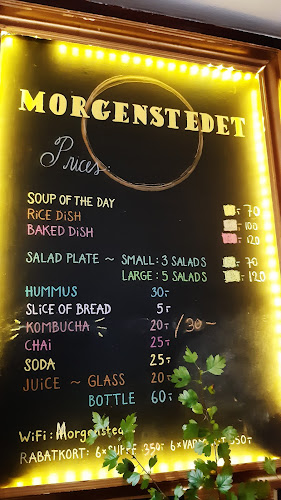 MORGENSTEDET
Prices:
SOUP OF THE DAY :- 70
RICE DISH :- 100
BAKED DISH :- 120
SALAD PLATE ~ SMALL: 3 SALADS :- 70
LARGE: 5 SALADS :- 120
HUMMUS 30:-
SLICE OF BREAD 5:-
KOMBUCHA 20:- / 30:-
CHAi 25:-
SODA 25:-
JUiCE ~ GLASS 20:-
BOTTLE 60:-
WiFi: Morgensted
RABATKORT: 6x SUPPE 350:- 6x